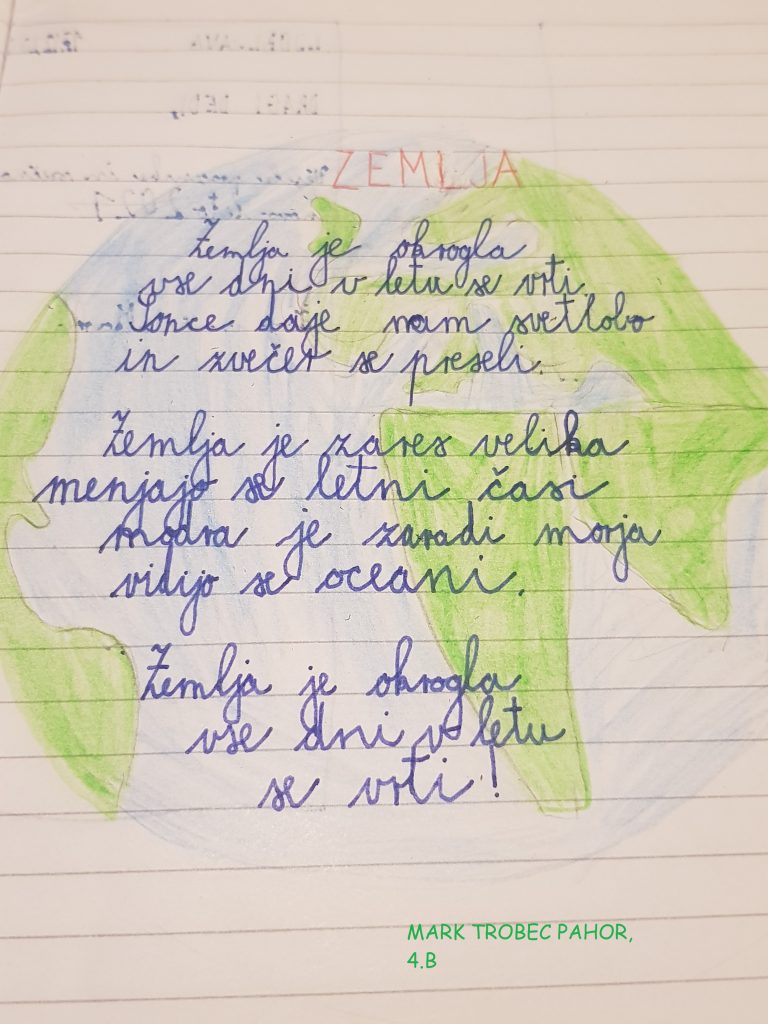 ZEMLJA
Zemlja je okrogla
vse dni v letu se vrti.
Sonce daje nam svetlobo
in zvečer se preseli.
Zemlja je zares velika
menjajo se letni časi
modra je zaradi morja
vidijo se oceani.
Zemlja je okrogla
vse dni v letu
se vrti!
MARK TROBEC PAHOR,
4.B